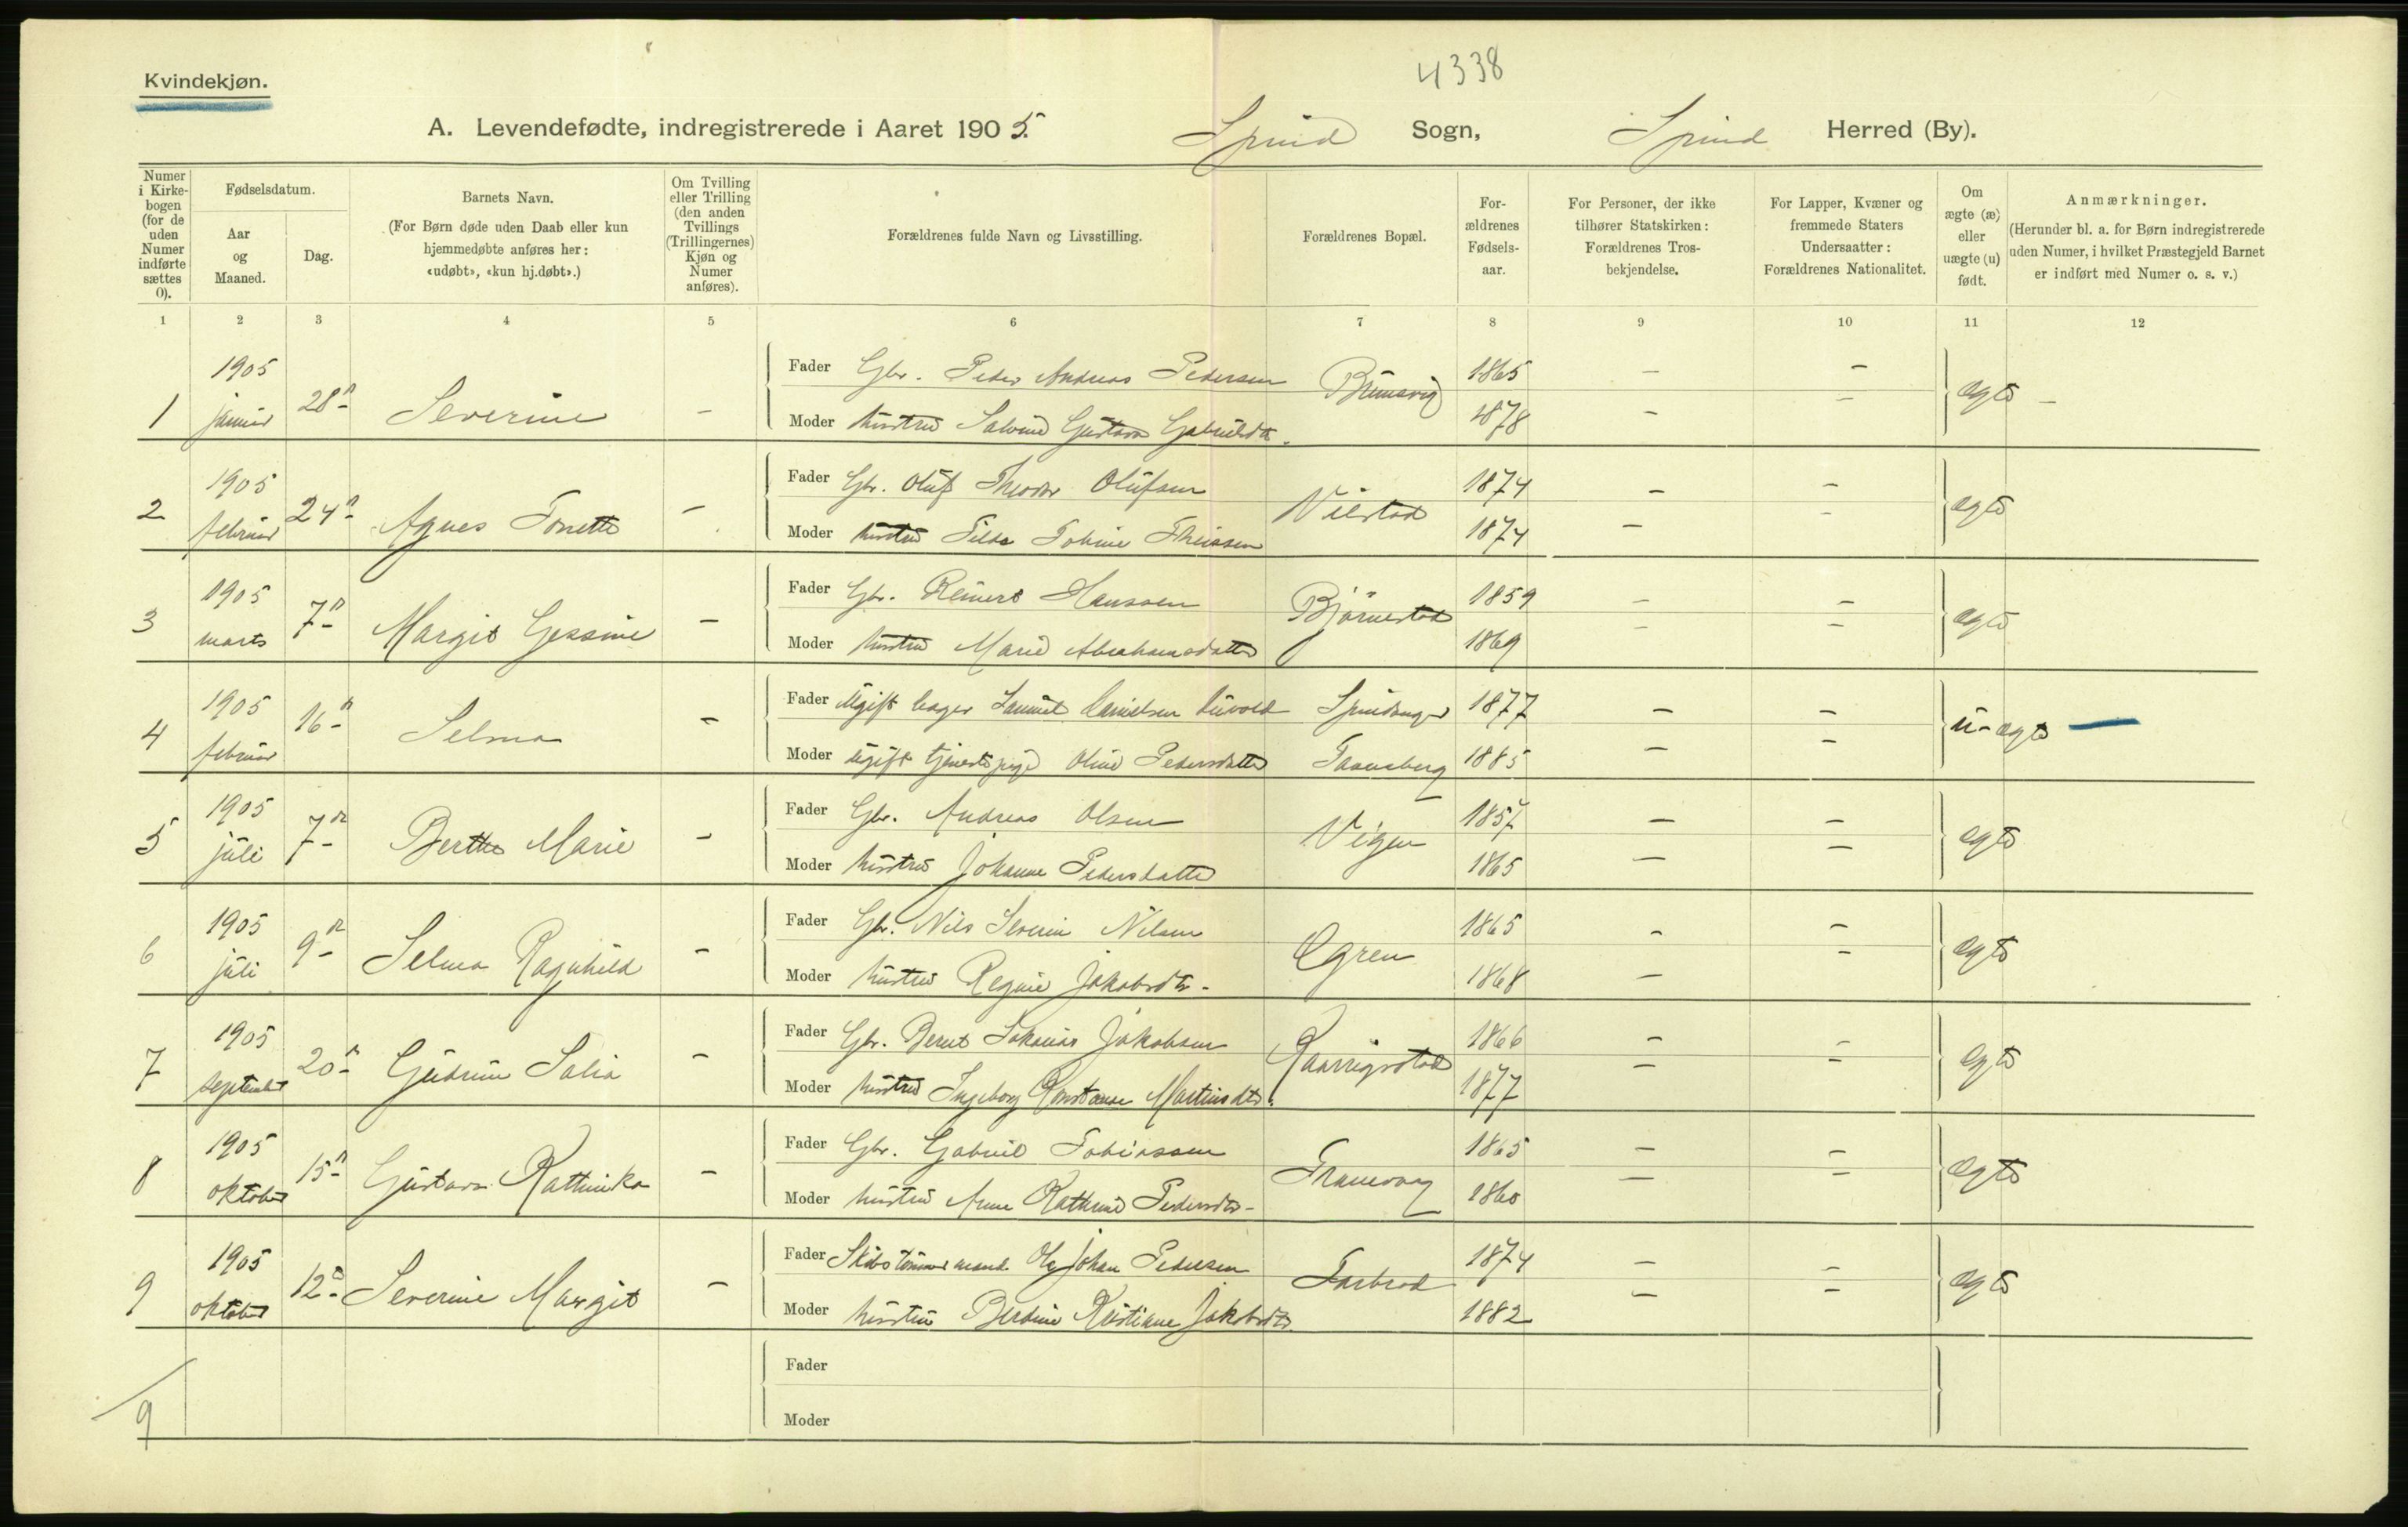 4338
Kvindekjøn.
A. Levendefødte, indregistrerede i Aaret 1905. Spind Sogn, Spind Herred (By).
Numer i Kirkebogen (for de uden Numer indførte sættes 0).
Fødselsdatum.
Aar og Maaned.
Dag.
Barnets Navn.
(For Børn døde uden Daab eller kun hjemmedøbte anføres her: «udøbt», «kun hj.døbt».)
Om Tvilling eller Trilling (den anden Tvillings (Trillingernes) Kjøn og Numer anføres).
Forældrenes fulde Navn og Livsstilling.
Forældrenes Bopæl.
Forældrenes Fødselsaar.
For Personer, der ikke tilhører Statskirken: Forældrenes Trosbekjendelse.
For Lapper, Kvæner og fremmede Staters Undersaatter: Forældrenes Nationalitet.
Om ægte (æ) eller uægte (u) født.
Anmærkninger.
(Herunder bl. a. for Børn indregistrerede uden Numer, i hvilket Præstegjeld Barnet er indført med Numer o. s. v.)
1 2 3 4 5 6 7 8 9 10 11 12
1 1905 januar 28n Severine - Fader Gbr. Peder Andreas Pedersen 1865 - -
Moder hustru Gustava Gabrielsdtr. 1878 - - ægte -
2 1905 februar 24n Agnes Tonette - Fader Gbr. Oluf Theodor Olufsen 1874 - -
Moder hustru Tilda Tobine 1874 - - ægte
3 1905 marts 7n Margit Gessine - Fader Gbr. Reinert Hanssen Björnestad 1859 - -
Moder hustru Marie Abrahamsdatter 1869 - - ægte
4 1905 februar 16n Selma - Fader Ugift Samuel Danielsen 1877 - -
Moder ugift tjenestepige Oline Pedersdatter 1885 - - u-ægte -
5 1905 juli 7n Berthe Marie - Fader Gbr. Andreas Olsen Vigen 1857 - -
Moder hustru Johanne Pedersdatter 1865 - - ægte
6 1905 juli 9n Selma Ragnhild - Fader Gbr. Nils Severin Nilsen Ögren 1865 - -
Moder hustru Regine Jakobsdtr. 1868 - - ægte
7 1905 september 20n Gudrun Salia - Fader Gbr. Bernt Jakobsen 1866 - -
Moder hustru Ingeborg Konstanse Martinsdtr. 1877 - - ægte
8 1905 oktober 15n Gustava Kathinka - Fader Gbr. Gabriel Tobiassen 1865 - -
Moder hustru Anne Kathrine Pedersdtr. 1860 - - ægte
9 1905 oktober 12n Severine Margit - Fader Skibstømmermand Ole Johan Pedersen Farbrod 1874 - -
Moder hustru Berdine Kristiane Jakobsdtr. 1882 - - ægte
Fader
Moder
9